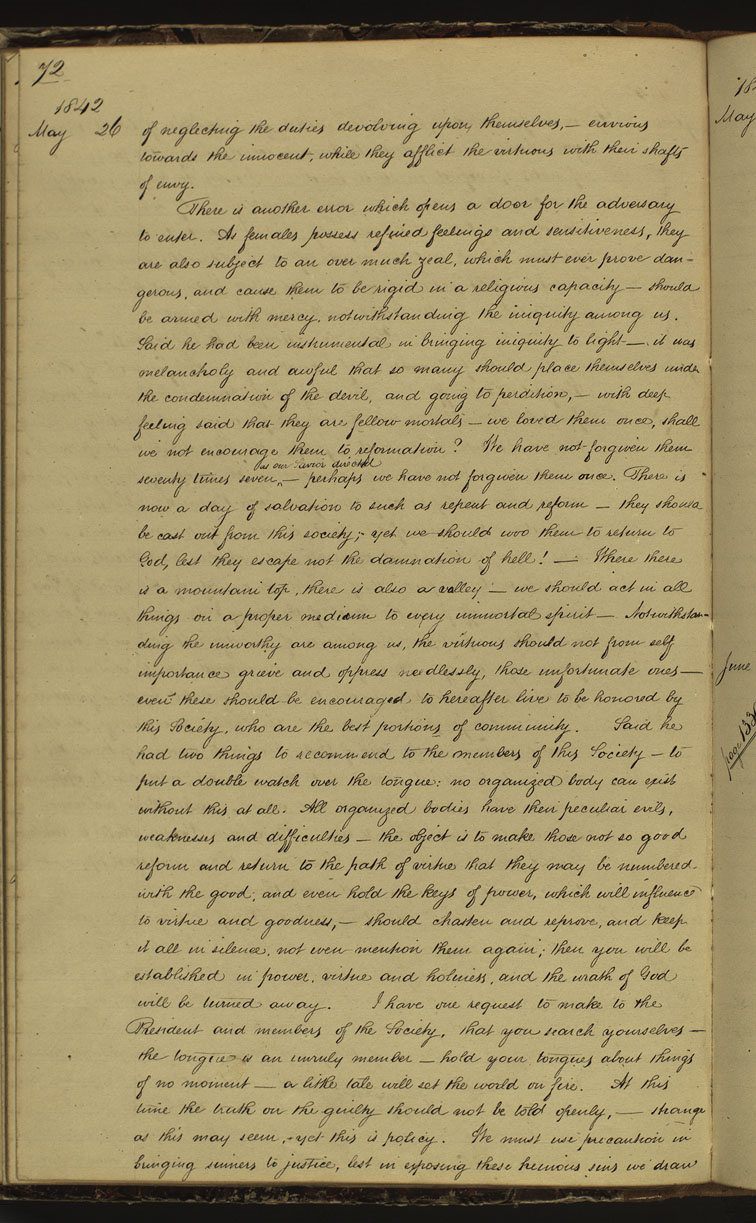 72
1842
May 26 of neglecting the duties devolving upon themselves,— envious
towards the innocent, while they afflict the virtuous with their shafts
of envy.
There is another error which opens a door for the adversary
to enter. As females possess refined feelings and sensitiveness, they
are also subject to an over much zeal, which must ever prove dan-
gerous, and cause them to be rigid in a religious capacity — should
be armed with mercy, notwithstanding the iniquity among us.
Said he had been instrumental in bringing iniquity to light — it was
melancholy and awful that so many should place themselves under
the condemnation of the devil, and going to perdition,— with deep
feeling said that they are fellow mortals — we loved them once, shall
we not encourage them to reformation? We have not forgiven them
as our Savior directed
seventy times seven,— perhaps we have not forgiven them once. There is
now a day of salvation to such as repent and reform — they should
be cast out from this society;— yet we should woo them to return to
God, lest they escape not the damnation of hell! — Where there
is a mountain top, there is also a valley — we should act in all
things on a proper medium to every immortal spirit — Notwithstan-
ding the unworthy are among us, the virtuous should not from self
importance grieve and oppress needlessly, those unfortunate ones —
even these should be encouraged to hereafter live to be honored by
this Society, who are the best portions of community. Said he
had two things to recommend to the members of this Society — to
put a double watch over the tongue: no organized body can exist
without this at all. All organized bodies have their peculiar evils,
weaknesses and difficulties — the object is to make those not so good
reform and return to the path of virtue that they may be numbered
with the good, and even hold the keys of power, which will influence
to virtue and goodness,— should chasten and reprove, and keep
it all in silence, not even mention them again; then you will be
established in power, virtue and holiness, and the wrath of God
will be turned away. I have one request to make to the
President and members of the Society, that you search yourselves —
the tongue is an unruly member — hold your tongues about things
of no moment — a little tale will set the world on fire. At this
time the truth on the guilty should not be told openly,— strange
as this may seem,— yet this is policy. We must use precaution in
bringing sinners to justice, lest in exposing these heinous sins we draw
18
May
June
page 133